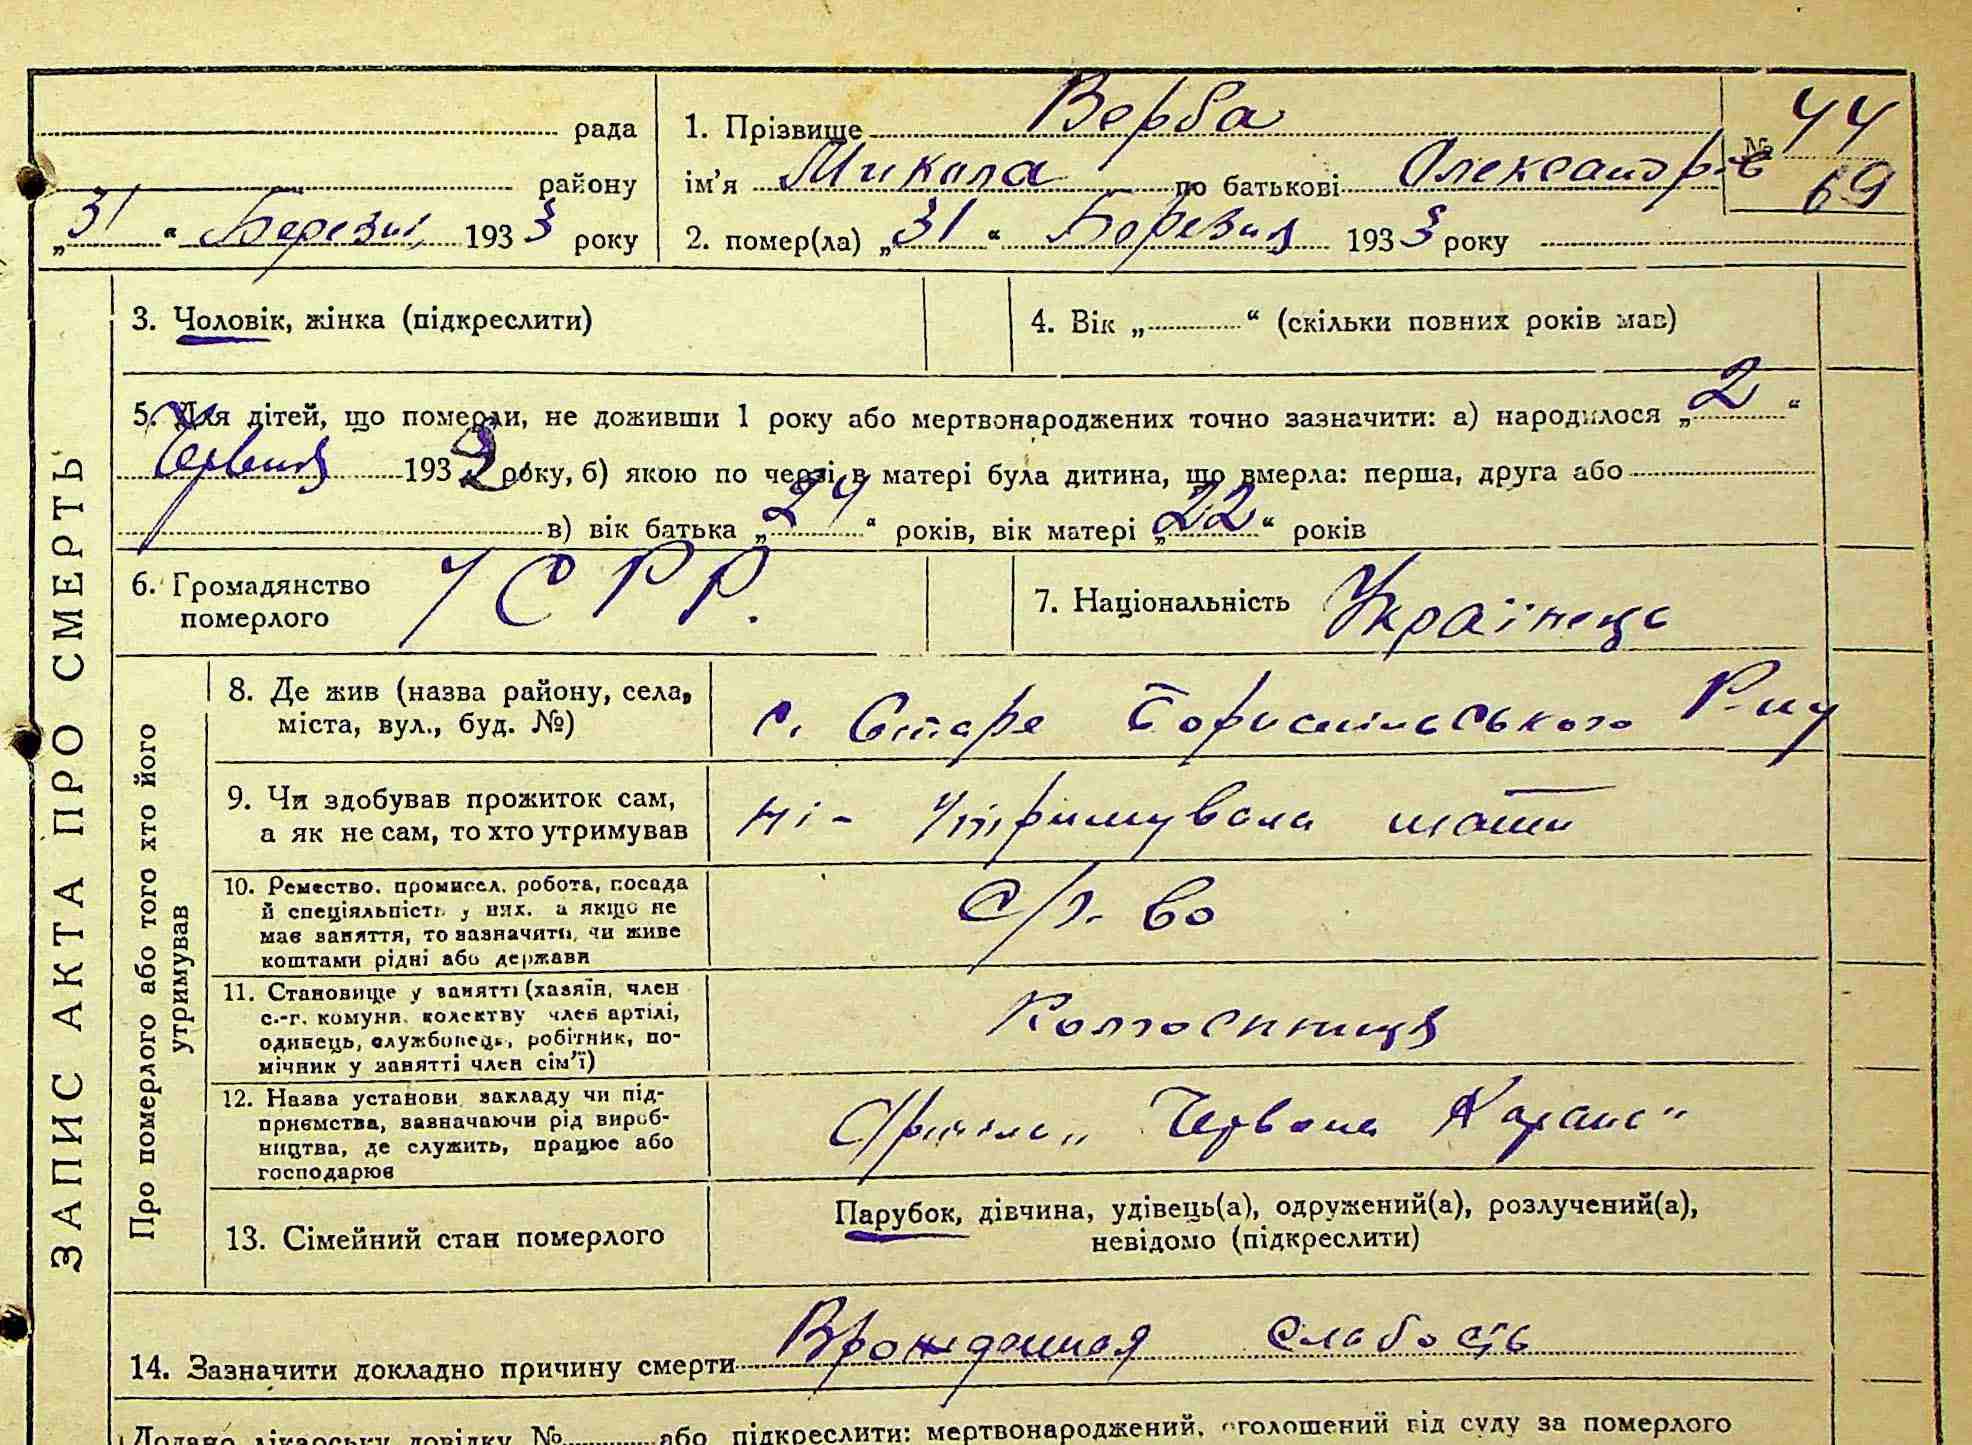 ЗАПИС АКТА ПРО СМЕРТЬ
рада
району
„31“ Березня 1933 року
1. Прізвище Верба
№ 44
69
ім'я Микола по батькові Олександр-в
2. помер(ла) „31“ Березня 1933 року
3. Чоловік, жінка (підкреслити)
4. Вік „ “ (скільки повних років мав)
5. Для дітей, що померли, не доживши 1 року або мертвонароджених точно зазначити: а) народилося „2“
Червня 1932 року, б) якою по черзі в матері була дитина, що вмерла: перша, друга або
в) вік батька „24“ років, вік матері „22“ років
6. Громадянство
померлого
УСРР.
7. Національність Українець
Про померлого або того хто його
утримував
8. Де жив (назва району, села,
міста, вул., буд. №)
с. Старе Бориспільського Р-ну
9. Чи здобував прожиток сам,
а як не сам, то хто утримував
ні - Утримувала мати
10. Ремество, промисел, робота, посада
й спеціяльність у них, а якщо не
має заняття, то зазначити, чи живе
коштами рідні або держави
С/г-во
11. Становище у занятті (хазяїн, член
с.-г. комуни, колективу член артілі,
одинець, службовець, робітник, по-
мічник у занятті член сім'ї)
Колгоспниця
12. Назва установи, закладу чи під-
приємства, зазначаючи рід вироб-
ництва, де служить, працює або
господарює
Артіль „Червона
13. Сімейний стан померлого
Парубок, дівчина, удівець(а), одружений(а), розлучений(а),
невідомо (підкреслити)
14. Зазначити докладно причину смерти Врожденная слабость
Додано лікарську довідку № або підкреслити: мертвонароджений, оголошений від суду за померлого